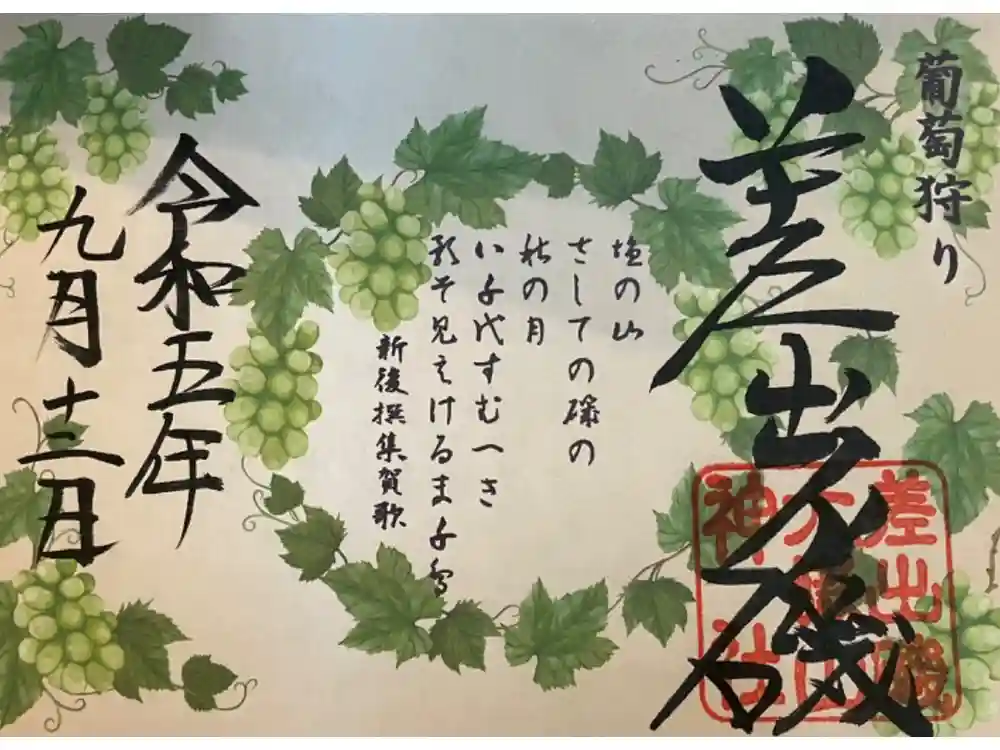 葡萄狩り
差出磯
差出磯
大嶽山
神社
塩の山
さしての磯の
秋の月
いよ代すむへき
影そ見えけるま千鳥
新後撰集賀歌
令和五年
九月十三日